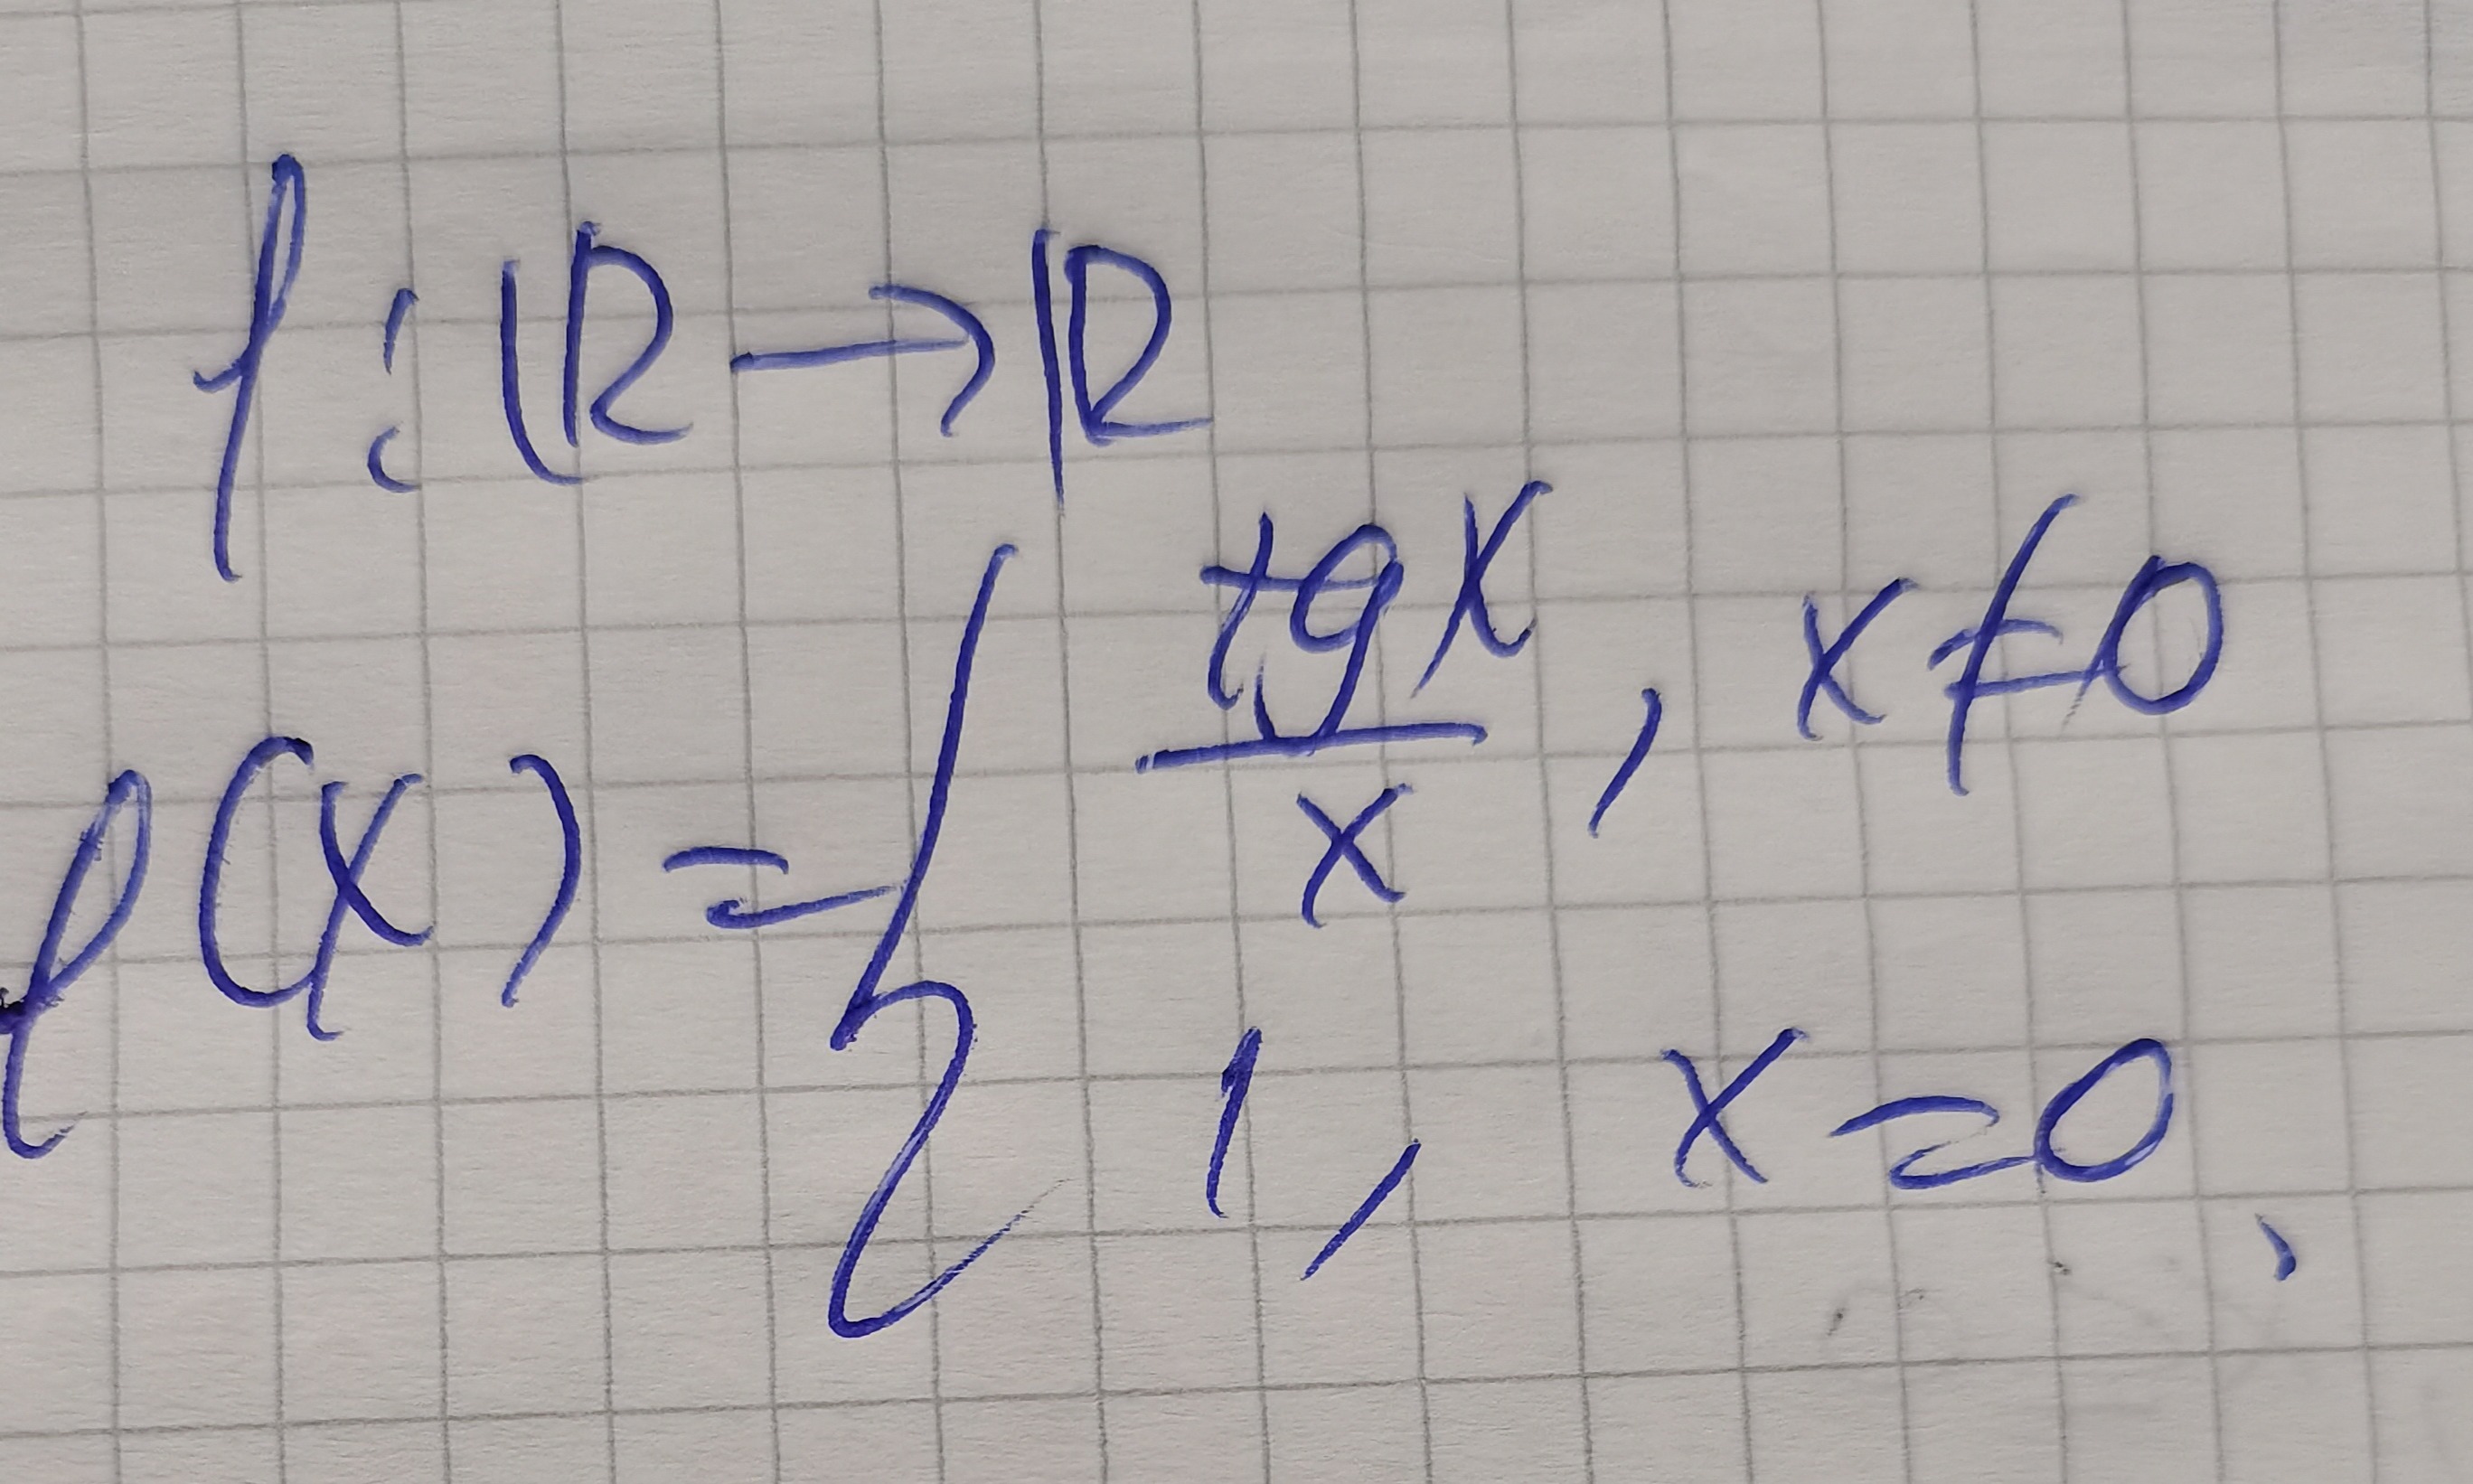 f : ℝ → ℝ
f(x) = { tg x / x , x ≠ 0
1 , x = 0 .